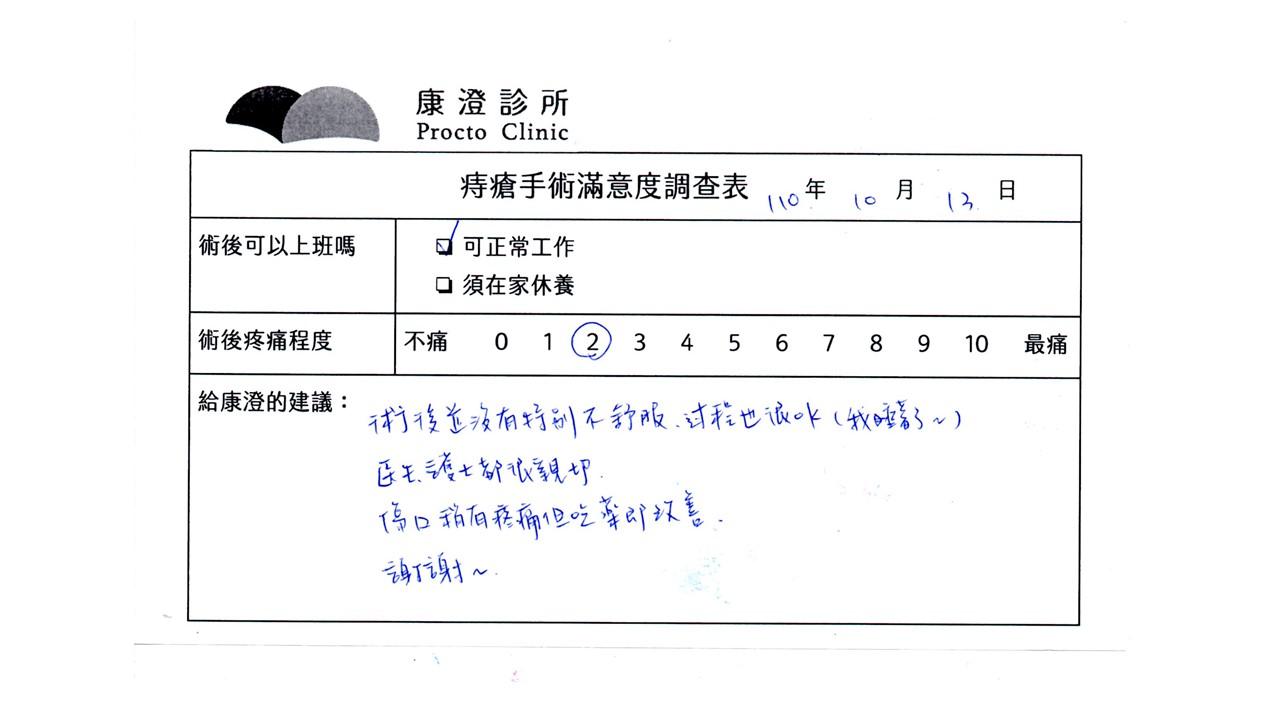 康澄診所
Procto Clinic
痔瘡手術滿意度調查表 110年 10月 13日
術後可以上班嗎
可正常工作
須在家休養
術後疼痛程度
不痛 0 1 2 3 4 5 6 7 8 9 10 最痛
給康澄的建議：
術後並沒有特別不舒服、过程也很OK(我睡著了~)
医生、護士都很親切.
傷口稍有疼痛但吃藥即改善.
謝謝~.